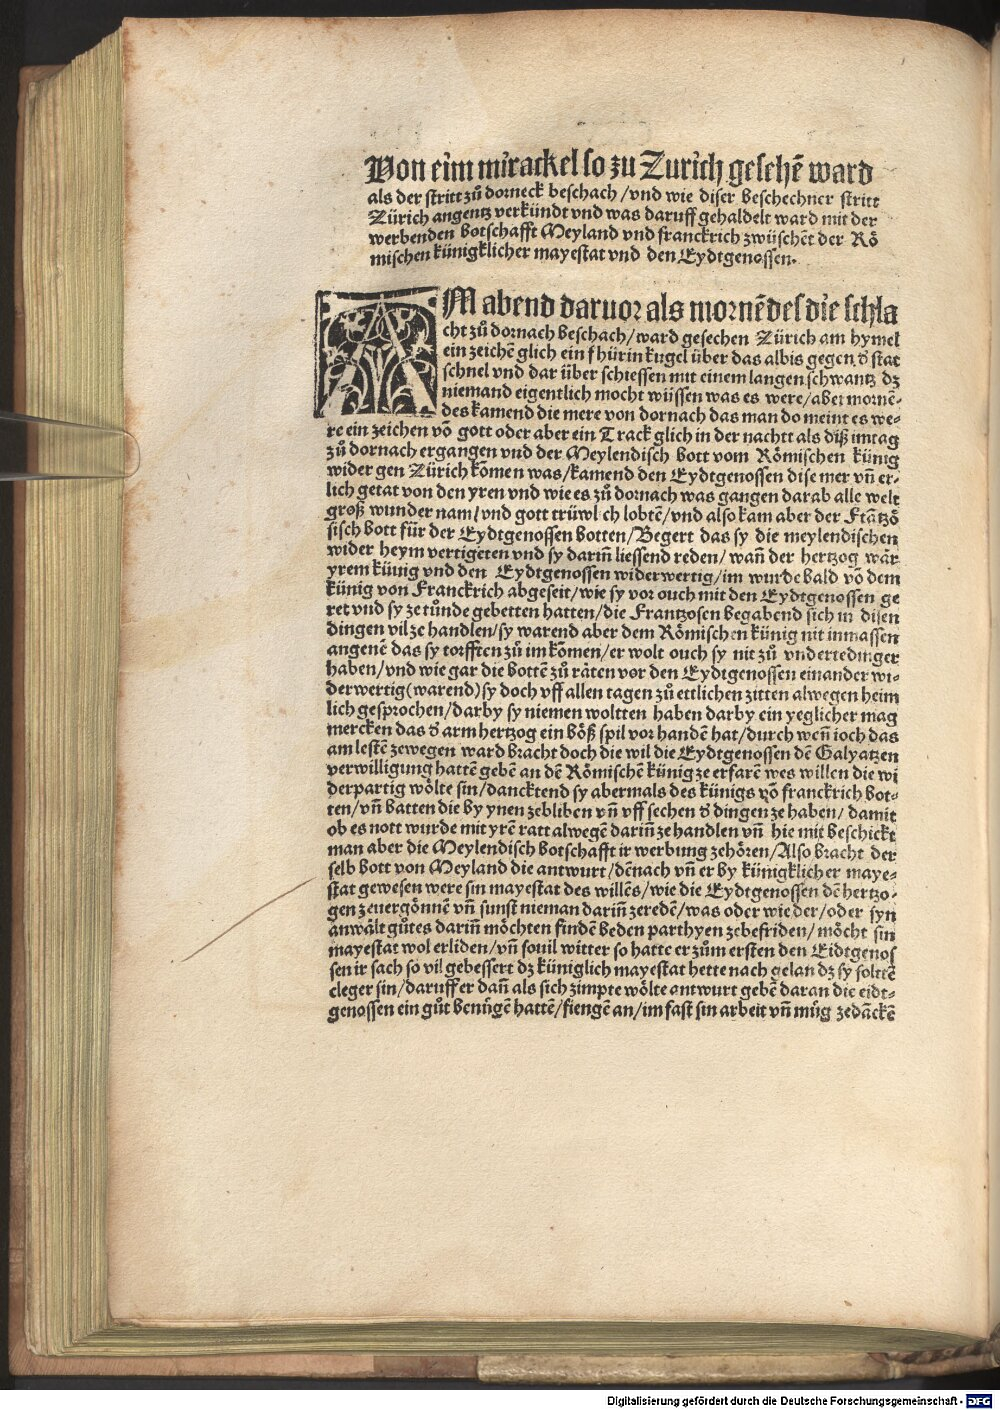 Von eim mirackel so zu Zurich gesehē ward
als der stritt zů dorneck beschach / vnd wie diser beschechner stritt
Zürich angentz verkündt vnd was daruff gehaldelt ward mit der
werbenden botschafft Meyland vnd franckrich zwüschēt der Rö
mischen künigklicher mayestat vnd den Eydtgenossen.
AM abend daruor als mornēdes die schla
cht zů dornach beschach / ward gesechen Zürich am hymel
ein zeichē glich ein fhürin kugel über das albis gegen d̄ stat
schnel vnd dar über schiessen mit einem langen schwantz dz
niemand eigentlich mocht wüssen was es were / aber mornē-
des kamend die mere von dornach das man do meint es we-
re ein zeichen vō gott oder aber ein Track glich in der nachtt als diß imtag
zů dornach ergangen vnd der Meylendisch bott vom Römischen künig
wider gen Zürich kōmen was / kamend den Eydtgenossen dise mer vn̄ er-
lich getat von den yren vnd wie es zů dornach was gangen darab alle welt
groß wunder nam / vnd gott trüwlich lobtē / vnd also kam aber der Frātzö
sisch bott für der Eydtgenossen botten / Begert das sy die meylendischen
wider heym vertigeten vnd sy darin̄ liessend reden / wan̄ der hertzog wär
yrem künig vnd den Eydtgenossen widerwertig / im wurde bald vō dem
künig von Franckrich abgeseit / wie sy vor ouch mit den Eydtgenossen ge
ret vnd sy ze tůnde gebetten hatten / die Frantzosen begabend sich in disen
dingen vil ze handlen / sy warend aber dem Römischen künig nit inmassen
angenē das sy torfften zů im kōmen / er wolt ouch sy nit zů vndertedinger
haben / vnd wie gar die bottē zů räten vor den Eydtgenossen einander wi-
derwertig (warend) sy doch vff allen tagen zů ettlichen zitten alwegen heim
lich gesprochen / darby sy niemen woltten haben darby ein yeglicher mag
mercken das d̄ arm hertzog ein böß spil vor handē hat / durch wen̄ ioch das
am lestē zewegen ward bracht doch die wil die Eydtgenossen dē Galyatzen
verwilligung hattē gebē an dē Römischē künig ze erfarē wes willen die wi
derpartig wölte sin / dancktend sy abermals des künigs vō franckrich bot-
ten / vn̄ batten die by ynen zebliben vn̄ vff sechen d̄ dingen ze haben / damit
ob es nott wurde mit yrē ratt alwegē darin̄ ze handlen vn̄ hie mit beschickt
man aber die Meylendisch botschafft ir werbung zehören / Also bracht der
selb bott von Meyland die antwurt / dēnach vn̄ er by künigklicher maye-
stat gewesen were sin mayestat des willēs / wie die Eydtgenossen dē hertzo-
gen zeuergönnē vn̄ sunst nieman darin̄ zeredē / was oder wie der / oder syn
anwält gůtes darin̄ möchten findē beden parthyen zebefriden / möcht sin
mayestat wol erliden / vn̄ souil witter so hatte er zům ersten den Eidtgenos
sen ir sach so vil gebessert dz küniglich mayestat hette nach gelan dz sy soltē
cleger sin / daruff er dan̄ als sich zimpte wölte antwurt gebē daran die eidt-
genossen ein gůt benügē hattē / fiengē an / im fast sin arbeit vn̄ müg zedāckē
Digitalisierung gefördert durch die Deutsche Forschungsgemeinschaft - DFG